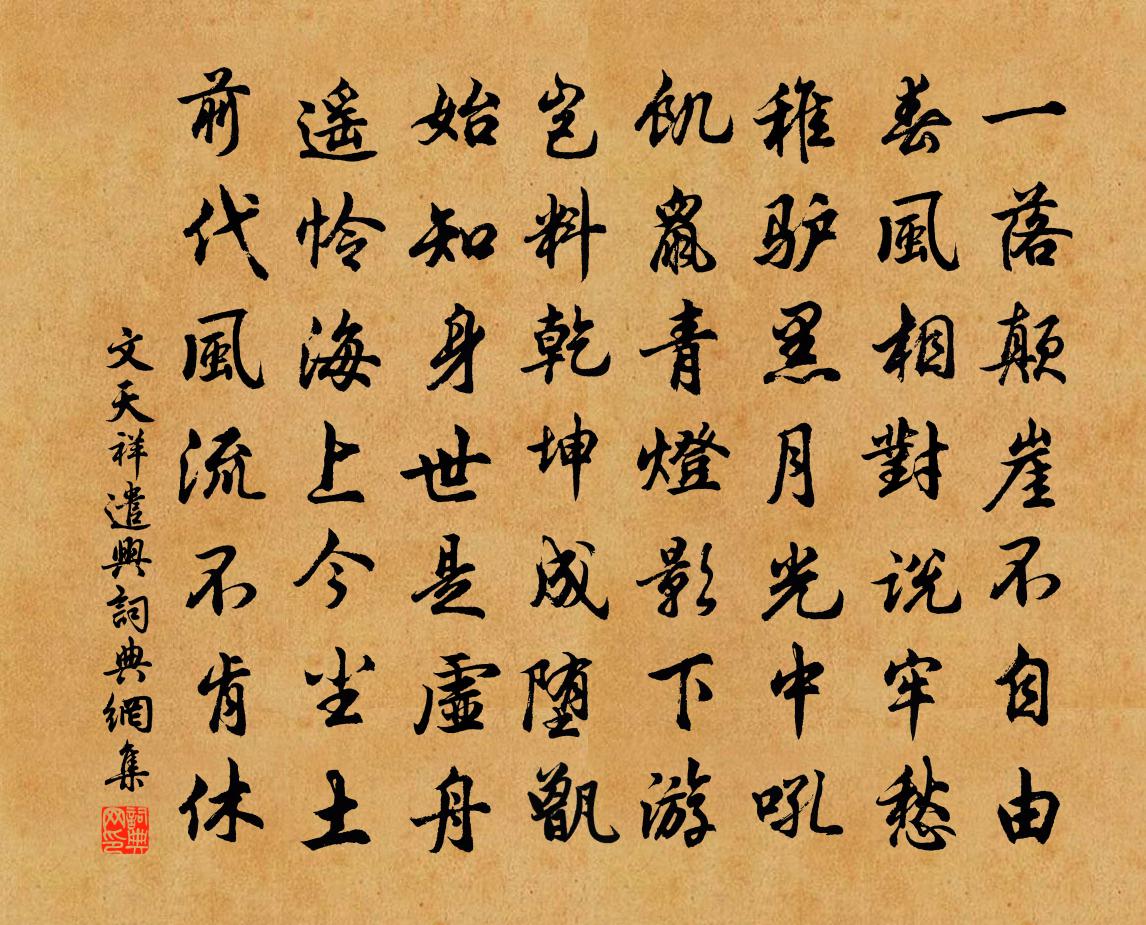 一落颠崖不自由
春風相對説牢愁
稚驴黑月光中吼
飢鼠青燈影下游
岂料乾坤成堕甑
始知身世是虚舟
遥怜海上今尘土
前代風流不肯休
文天祥遣興詞典網集
詞典網印